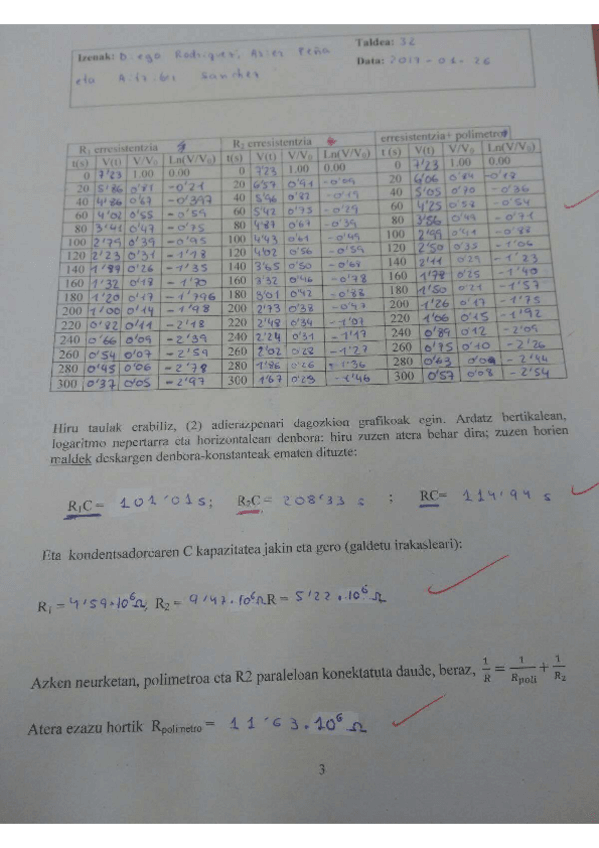 Izenak: Diego Rodriguez, Asier Peña
eta Sanchez
Taldea: 32
Data: 2017-01-26
R1 erresistentzia R2 erresistentzia erresistentzia+ polimetro
t(s) V(t) V/V0 Ln(V/V0) t(s) V(t) V/V0 Ln(V/V0) t (s) V(t) V/V0 Ln(V/V0)
0 7'23 1.00 0.00 0 7'23 1.00 0.00 0 7'23 1.00 0.00
20 5'86 0'81 -0'21 20 6'57 0'91 -0'09 20 6'06 0'84 -0'18
40 4'86 0'67 -0'397 40 5'96 0'82 -0'19 40 5'05 0'70 -0'36
60 4'02 0'55 -0'59 60 5'42 0'75 -0'29 60 4'25 0'58 -0'54
80 3'41 0'47 -0'75 80 4'87 0'67 -0'39 80 3'56 0'49 -0'71
100 2'79 0'39 -0'95 100 4'43 0'61 -0'49 100 2'99 0'41 -0'88
120 2'23 0'31 -1'18 120 4'02 0'56 -0'59 120 2'50 0'35 -1'06
140 1'89 0'26 -1'35 140 3'65 0'50 -0'68 140 2'11 0'29 -1'23
160 1'32 0'18 -1'70 160 3'32 0'46 -0'78 160 1'78 0'25 -1'40
180 1'20 0'17 -1'796 180 3'01 0'42 -0'88 180 1'50 0'21 -1'57
200 1'00 0'14 -1'98 200 2'73 0'38 -0'97 200 1'26 0'17 -1'75
220 0'82 0'11 -2'18 220 2'48 0'34 -1'07 220 1'06 0'15 -1'92
240 0'66 0'09 -2'39 240 2'24 0'31 -1'17 240 0'89 0'12 -2'09
260 0'54 0'07 -2'59 260 2'02 0'28 -1'27 260 0'75 0'10 -2'26
280 0'45 0'06 -2'78 280 1'86 0'26 -1'36 280 0'63 0'09 -2'44
300 0'37 0'05 -2'97 300 1'67 0'23 -1'46 300 0'57 0'08 -2'54
Hiru taulak erabiliz, (2) adierazpenari dagozkion grafikoak egin. Ardatz bertikalean,
logaritmo nepertarra eta horizontalean denbora: hiru zuzen atera behar dira; zuzen horien
maldek deskargen denbora-konstanteak ematen dituzte:
R1C = 101'01 s; R2C = 208'33 s ; RC= 114'94 s
Eta kondentsadorearen C kapazitatea jakin eta gero (galdetu irakasleari):
R1 = 4'59·10⁶Ω, R2 = 9'47·10⁶Ω R = 5'22·10⁶ Ω
Azken neurketan, polimetroa eta R2 paraleloan konektatuta daude, beraz, 1/R = 1/Rpoli + 1/R2
Atera ezazu hortik Rpolimetro = 11'63·10⁶ Ω
3